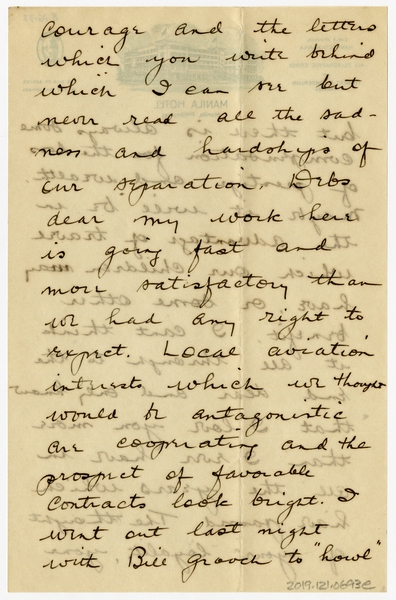 courage and the letters
which you write behind
which I can see but
never read all the sad-
ness and hardships of
our separation. Debs
dear my work here
is going fast and
more satisfactory than
we had any right to
expect. Local aviation
interests which we thought
would be antagonistic
are cooperating and the
prospect of favorable
contracts look bright. I
went out last night
with Bill Grooch to "howl"
2019.121.0693c